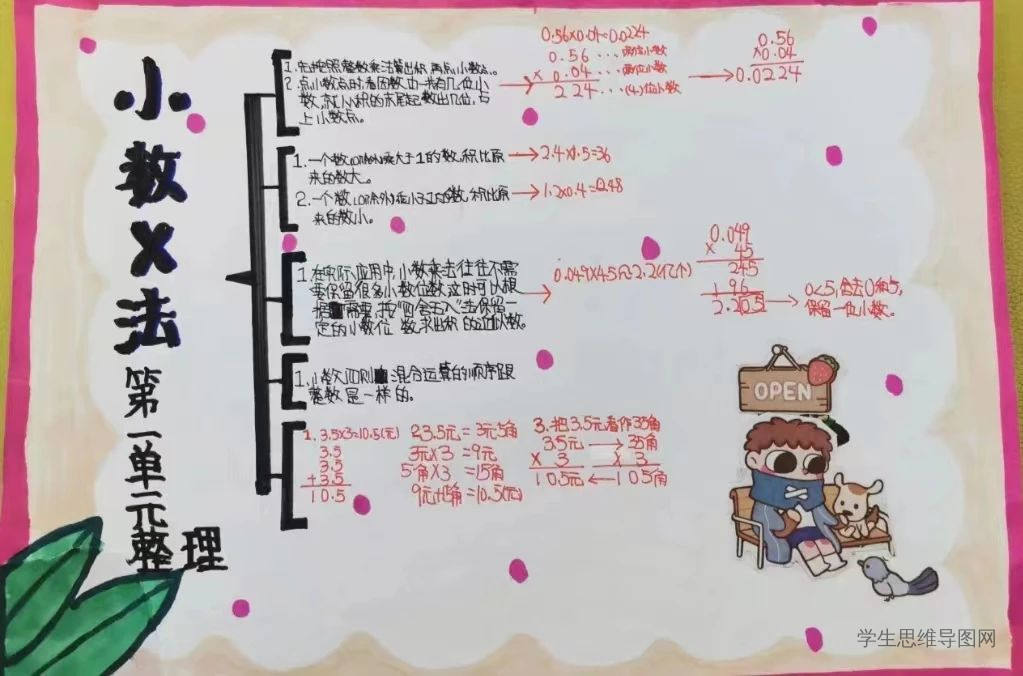 小数乘法
第一单元
整理
1.先按照整数乘法算出积,再点小数点。
2.点小数点时,看因数中一共有几位小
数,就从积的末尾起数出几位,点
上小数点。
0.56×0.04=0.0224
0.56 ...两位小数
× 0.04 ...两位小数
224 ...(4)位小数
0.56
×0.04
0.0224
1.一个数(0除外)乘大于1的数,积比原
来的数大。
2.4×1.5=36
2.一个数(0除外)乘小于1的数,积比原
来的数小。
1.2×0.4=0.48
1.在实际应用中,小数乘法往往不需
要保留很多小数位数,这时可以根
据需要,按“四舍五入”法保留一
定的小数位数,求出积的近似数。
0.049×45≈2.2(亿个)
0.049
× 45
245
196
2.205
0<5,舍去0和5,
保留一位小数。
1.小数四则混合运算的顺序跟
整数是一样的。
1. 3.5×3=10.5(元)
3.5
3.5
+3.5
10.5
2 3.5元=3元5角
3元×3=9元
5角×3=15角
9元+15角=10.5(元)
3.把3.5元看作35角
3.5元 35角
× 3 × 3
10.5元 105角
OPEN
学生思维导图网